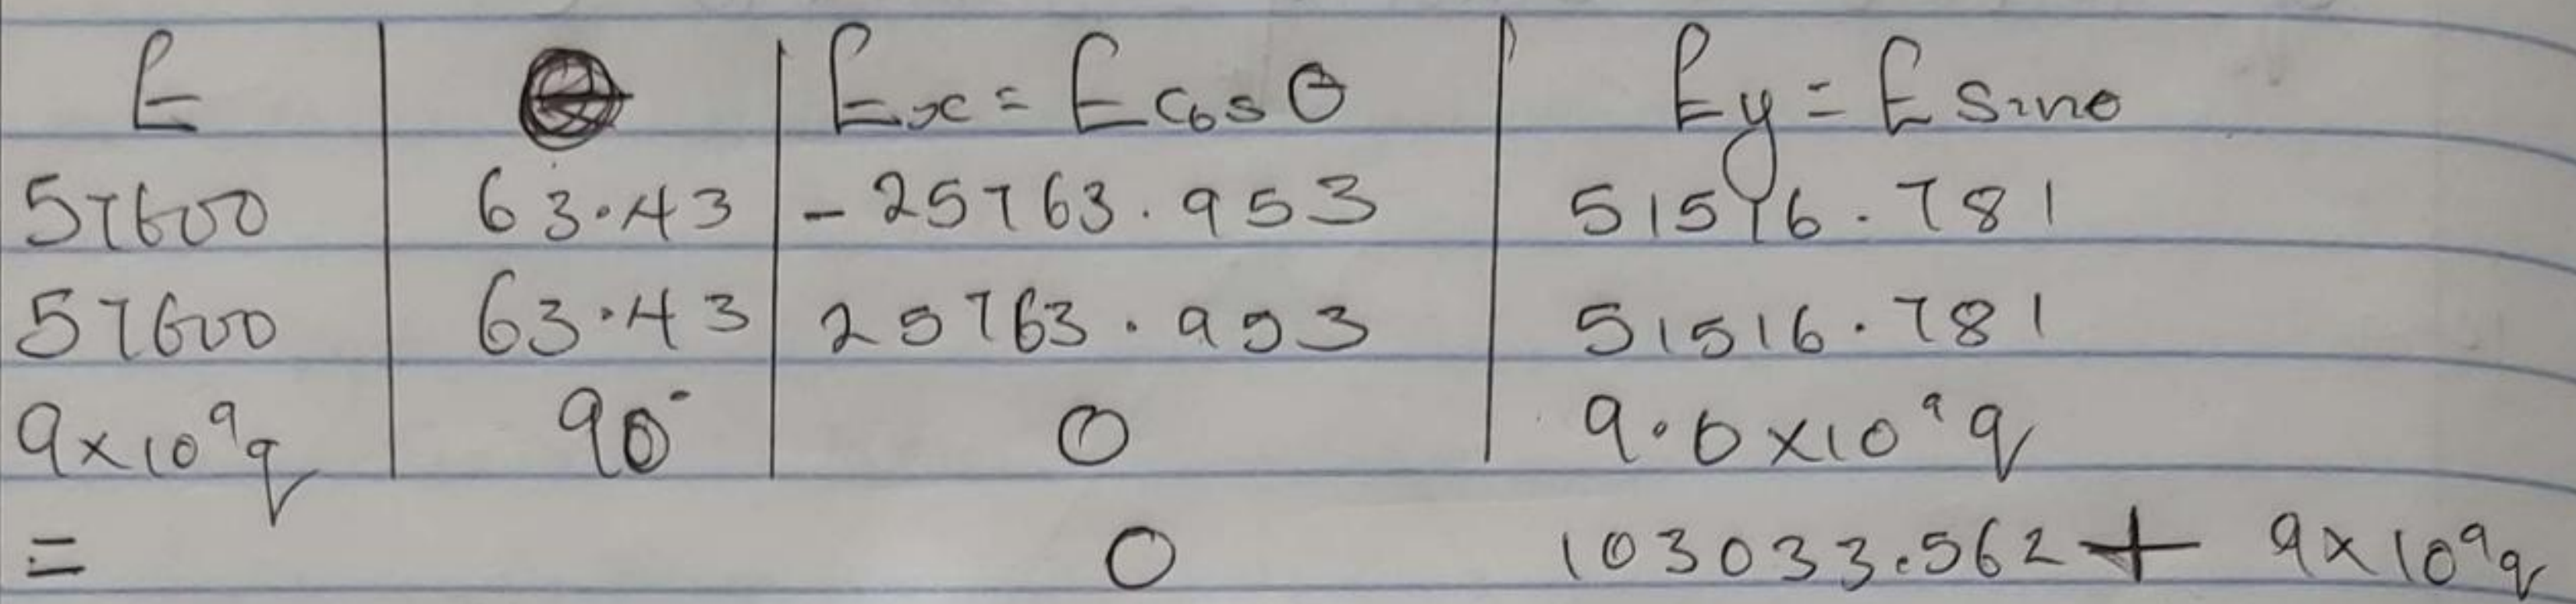 E θ Ex = E cos θ Ey = E sin θ
57600 63.43 -25763.953 51516.781
57600 63.43 25763.953 51516.781
9x10⁹q 90° 0 9.0x10⁹q
= 0 103033.562 + 9x10⁹q